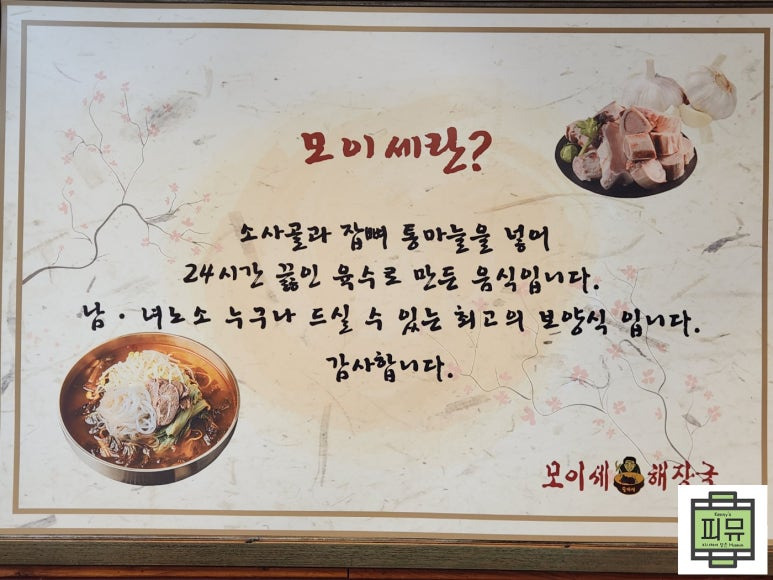 모이세란?
소사골과 잡뼈 통마늘을 넣어
24시간 끓인 육수로 만든 음식입니다.
남·녀노소 누구나 드실 수 있는 최고의 보양식 입니다.
감사합니다.
모이세 해장국
Kenny's
피뮤